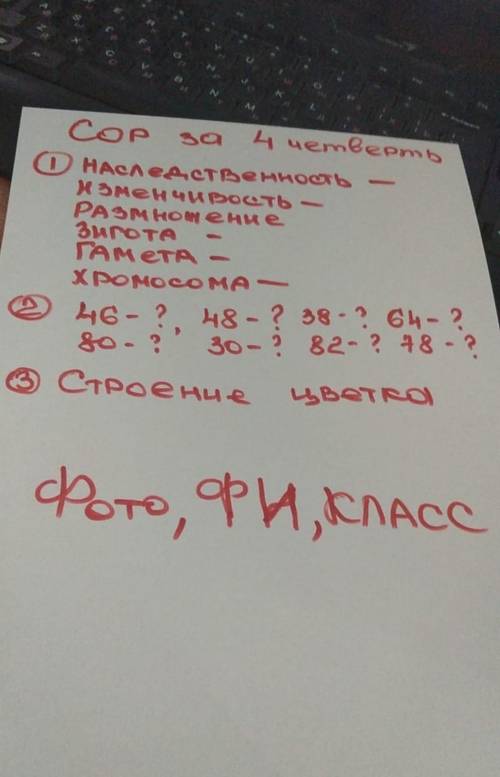 СОР за 4 четверть
① НАСЛЕДСТВЕННОСТЬ —
ИЗМЕНЧИВОСТЬ —
РАЗМНОЖЕНИЕ
ЗИГОТА -
ГАМЕТА —
ХРОМОСОМА —
② 46-?, 48-? 38-? 64-?
80-? 30-? 82-? 78-?
③ СТРОЕНИЕ ЦВЕТКА
ФОТО, ФИ, КЛАСС